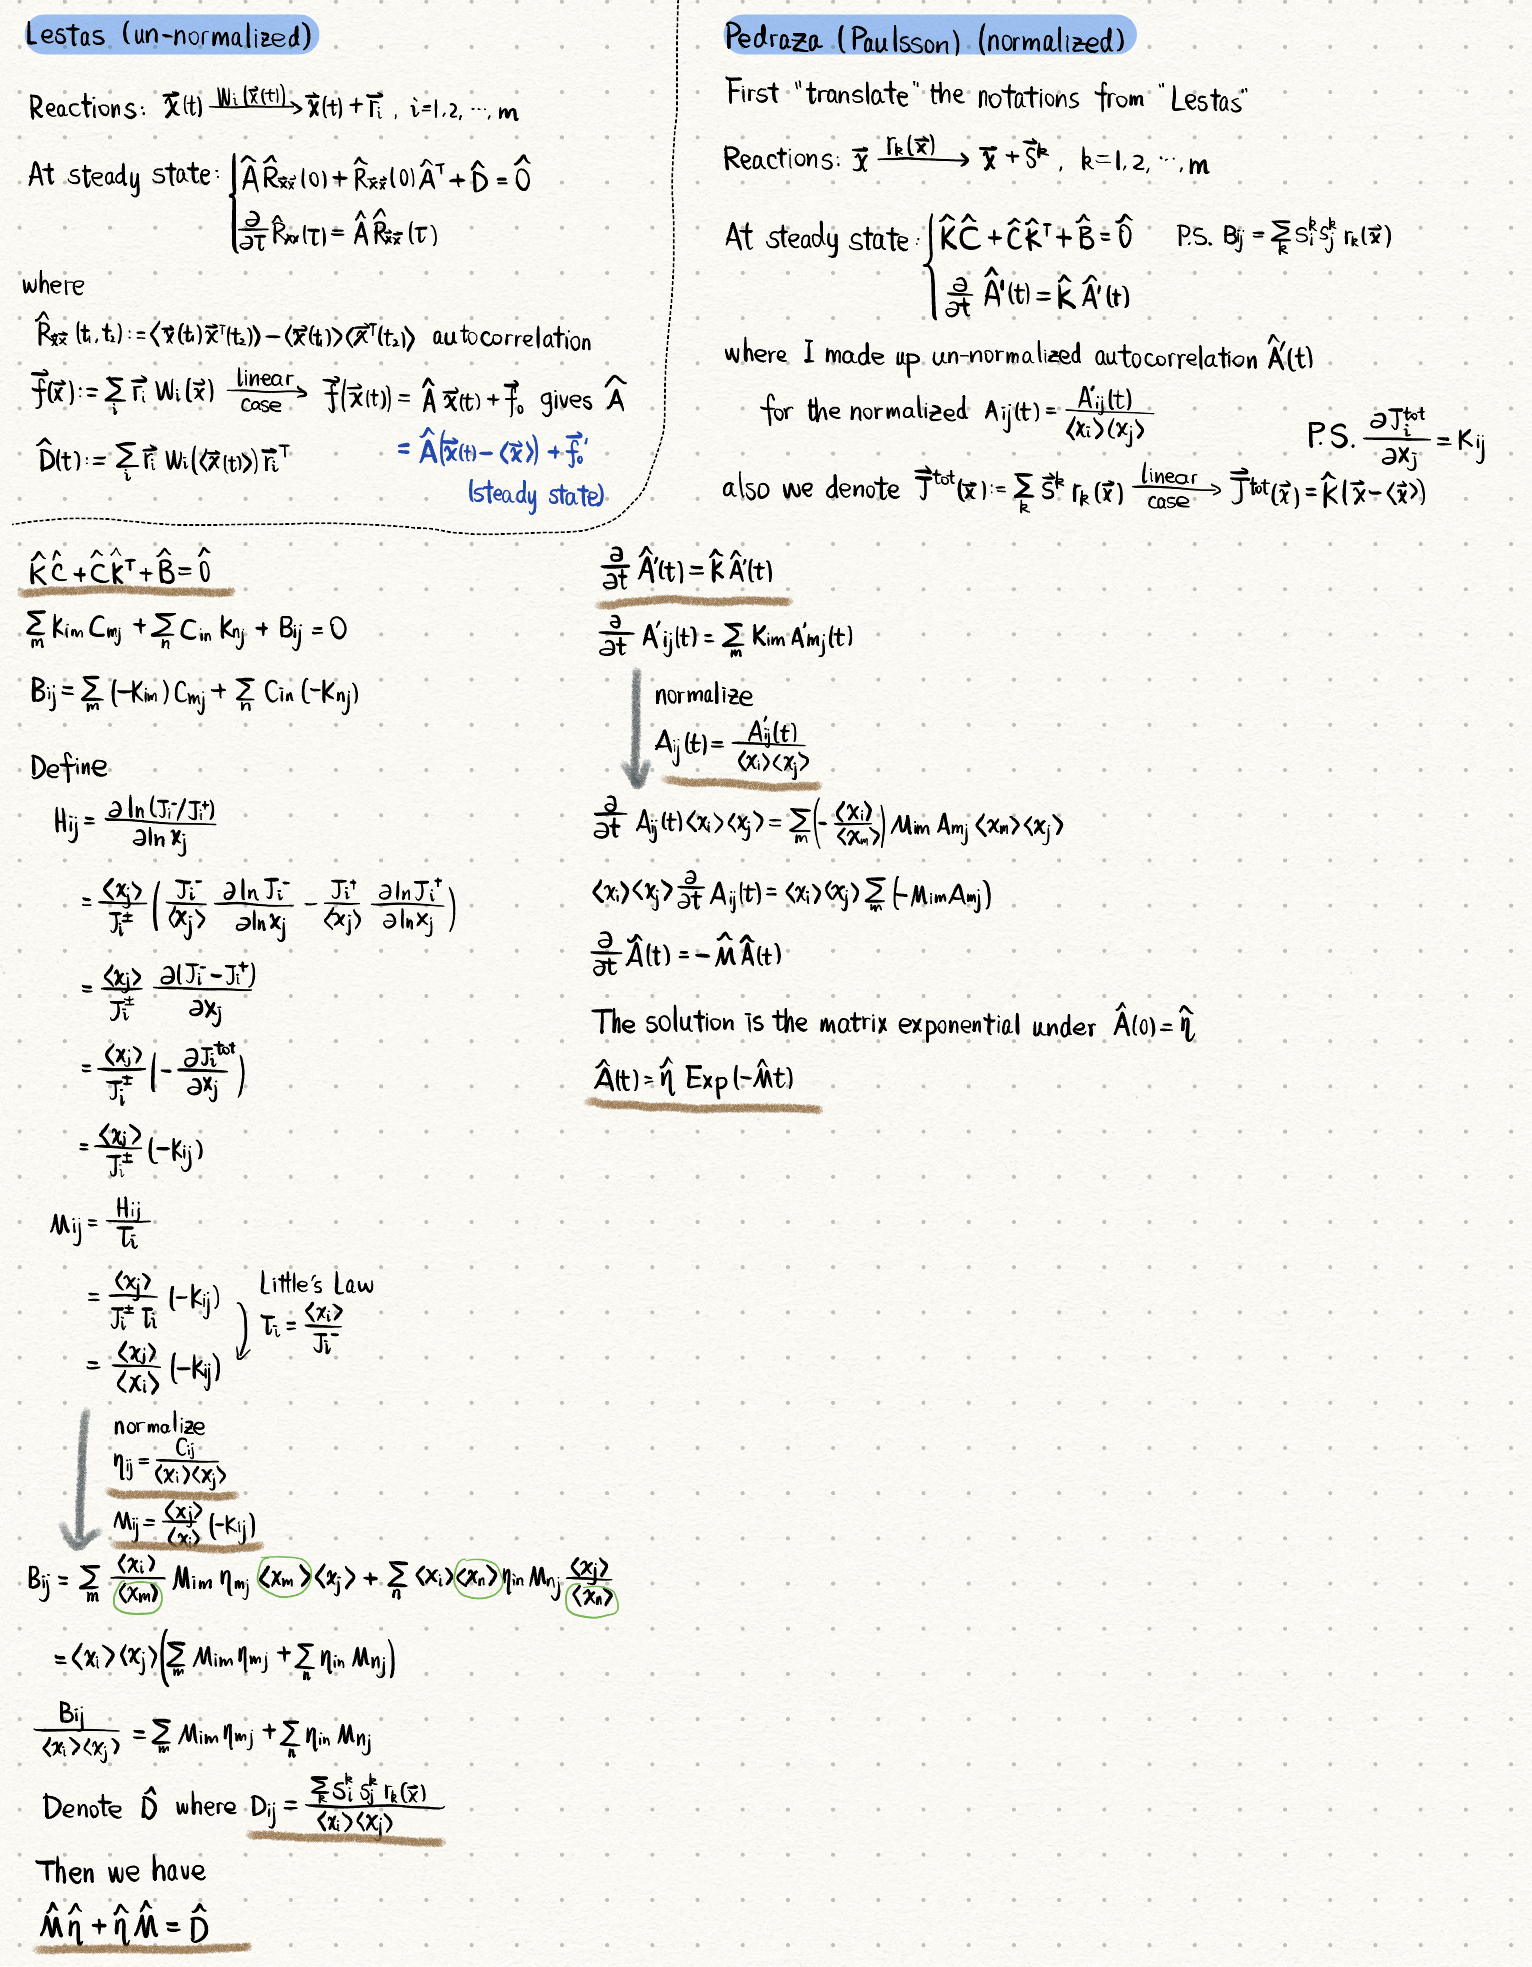 Lestas (un-normalized)
Reactions: x⃗(t) —W_i(x⃗(t))→ x⃗(t) + r⃗_i , i=1,2, ..., m
At steady state: { Â R̂_x⃗x⃗(0) + R̂_x⃗x⃗(0) Â^T + D̂ = 0̂
∂/∂τ R̂_xx(τ) = Â R̂_x⃗x⃗(τ)
where
R̂_x⃗x⃗(t₁,t₂) := ⟨x⃗(t₁)x⃗^T(t₂)⟩ − ⟨x⃗(t₁)⟩⟨x⃗^T(t₂)⟩ autocorrelation
f⃗(x⃗) := Σ_i r⃗_i W_i(x⃗) —linear case→ f⃗(x⃗(t)) = Â x⃗(t) + f⃗₀ gives Â
D̂(t) := Σ_i r⃗_i W_i(⟨x⃗(t)⟩) r⃗_i^T
= Â(x⃗(t) − ⟨x⃗⟩) + f⃗₀'
(steady state)
Pedraza (Paulsson) (normalized)
First "translate" the notations from "Lestas"
Reactions: x⃗ —r_k(x⃗)→ x⃗ + s⃗^k , k=1,2, ..., m
At steady state: { K̂Ĉ + ĈK̂^T + B̂ = 0̂ P.S. B_ij = Σ_k s_i^k s_j^k r_k(x⃗)
∂/∂t Â'(t) = K̂ Â'(t)
where I made up un-normalized autocorrelation Â'(t)
for the normalized A_ij(t) = A'_ij(t) / ⟨x_i⟩⟨x_j⟩
P.S. ∂J_i^tot/∂x_j = K_ij
also we denote J⃗^tot(x⃗) := Σ_k s⃗^k r_k(x⃗) —linear case→ J⃗^tot(x⃗) = K̂(x⃗ − ⟨x⃗⟩)
K̂Ĉ + ĈK̂^T + B̂ = 0̂
Σ_m K_im C_mj + Σ_n C_in K_nj + B_ij = 0
B_ij = Σ_m (−K_im) C_mj + Σ_n C_in (−K_nj)
Define
H_ij = ∂ ln(J_i^-/J_i^+) / ∂ ln x_j
= ⟨x_j⟩/J_i^± ( J_i^-/⟨x_j⟩ ∂ ln J_i^-/∂ ln x_j − J_i^+/⟨x_j⟩ ∂ ln J_i^+/∂ ln x_j )
= ⟨x_j⟩/J_i^± ∂(J_i^- − J_i^+)/∂x_j
= ⟨x_j⟩/J_i^± (− ∂J_i^tot/∂x_j)
= ⟨x_j⟩/J_i^± (−K_ij)
M_ij = H_ij/τ_i
= ⟨x_j⟩/(J_i^± τ_i) (−K_ij)
Little's Law
τ_i = ⟨x_i⟩/J_i^-
= ⟨x_j⟩/⟨x_i⟩ (−K_ij)
normalize
η_ij = C_ij / ⟨x_i⟩⟨x_j⟩
M_ij = ⟨x_j⟩/⟨x_i⟩ (−K_ij)
B_ij = Σ_m ⟨x_i⟩/⟨x_m⟩ M_im η_mj ⟨x_m⟩⟨x_j⟩ + Σ_n ⟨x_i⟩⟨x_n⟩ η_in M_nj ⟨x_j⟩/⟨x_n⟩
= ⟨x_i⟩⟨x_j⟩(Σ_m M_im η_mj + Σ_n η_in M_nj)
B_ij / ⟨x_i⟩⟨x_j⟩ = Σ_m M_im η_mj + Σ_n η_in M_nj
Denote D̂ where D_ij = Σ_k s_i^k s_j^k r_k(x⃗) / ⟨x_i⟩⟨x_j⟩
Then we have
M̂η̂ + η̂M̂ = D̂
∂/∂t Â'(t) = K̂ Â'(t)
∂/∂t A'_ij(t) = Σ_m K_im A'_mj(t)
normalize
A_ij(t) = A'_ij(t) / ⟨x_i⟩⟨x_j⟩
∂/∂t A_ij(t)⟨x_i⟩⟨x_j⟩ = Σ_m (− ⟨x_i⟩/⟨x_m⟩) M_im A_mj ⟨x_m⟩⟨x_j⟩
⟨x_i⟩⟨x_j⟩ ∂/∂t A_ij(t) = ⟨x_i⟩⟨x_j⟩ Σ_m (−M_im A_mj)
∂/∂t Â(t) = − M̂ Â(t)
The solution is the matrix exponential under Â(0) = η̂
Â(t) = η̂ Exp(−M̂t)